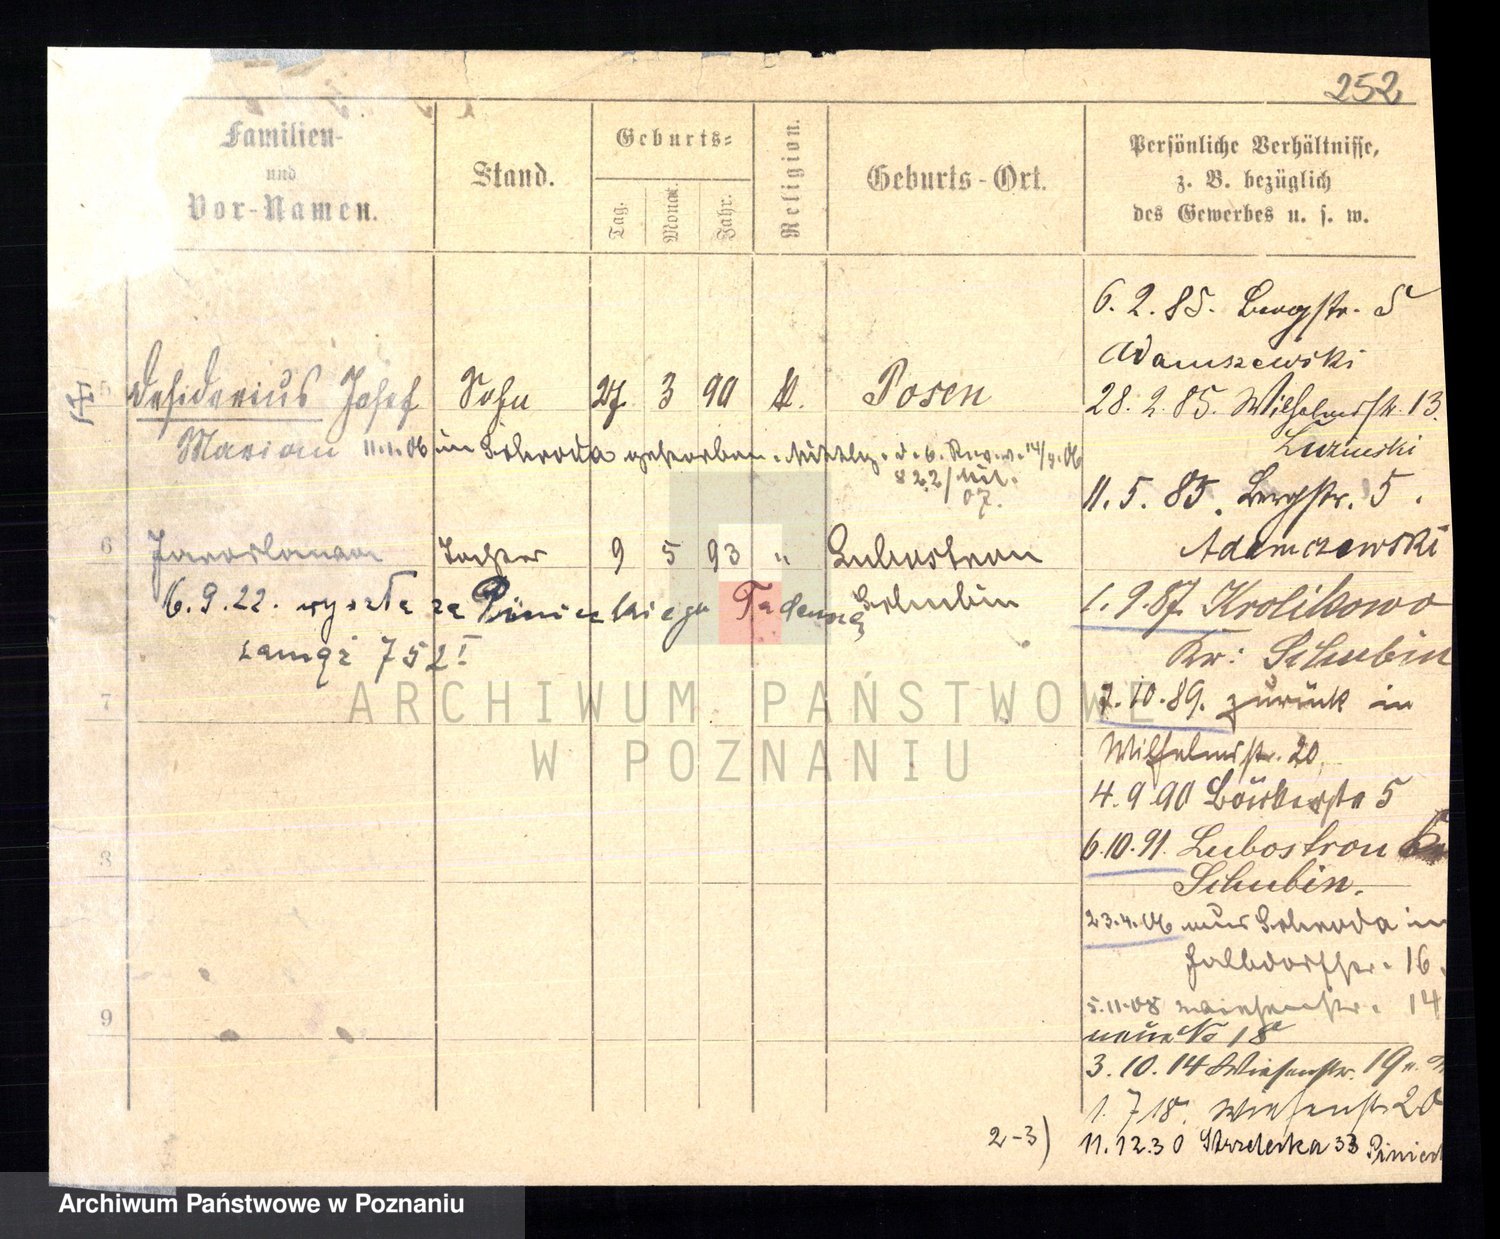 252
Familien-
und
Vor-Namen.
Stand.
Geburts-
Tag.
Monat.
Jahr.
Religion.
Geburts-Ort.
Persönliche Verhältnisse,
z. B. bezüglich
des Gewerbes u. s. w.
5 Desiderius Josef Sohn 27 3 90 k. Posen
Marian 11.1.06 in Schroda gestorben.
07.
6 Jaroslawa Tochter 9 5 93 " Lubostron
Schubin
6.9.22. wyszła za Pinieckiego Tadeusza
752 I
7
8
9
6.2.85. Bergstr. 5
Adamszewski
28.2.85. Wilhelmstr. 13.
11.5.85. Bergstr. 5.
Adamczewski
1.9.87. Krolikowo
Kr: Schubin
7.10.89. zurück in
Wilhelmstr. 20.
4.9.90 Bäckerstr 5
6.10.91. Lubostron
Schubin.
23.4.06 aus Schroda in
Halbdorfstr. 16.
5.11.08 Wiesenstr. 14
neue No 18
3.10.14 Wiesenstr. 19
1.7.18. Wiesenstr 20
2-3) 11.12.30 Strzelecka 33
ARCHIWUM PAŃSTWOWE
W POZNANIU
Archiwum Państwowe w Poznaniu